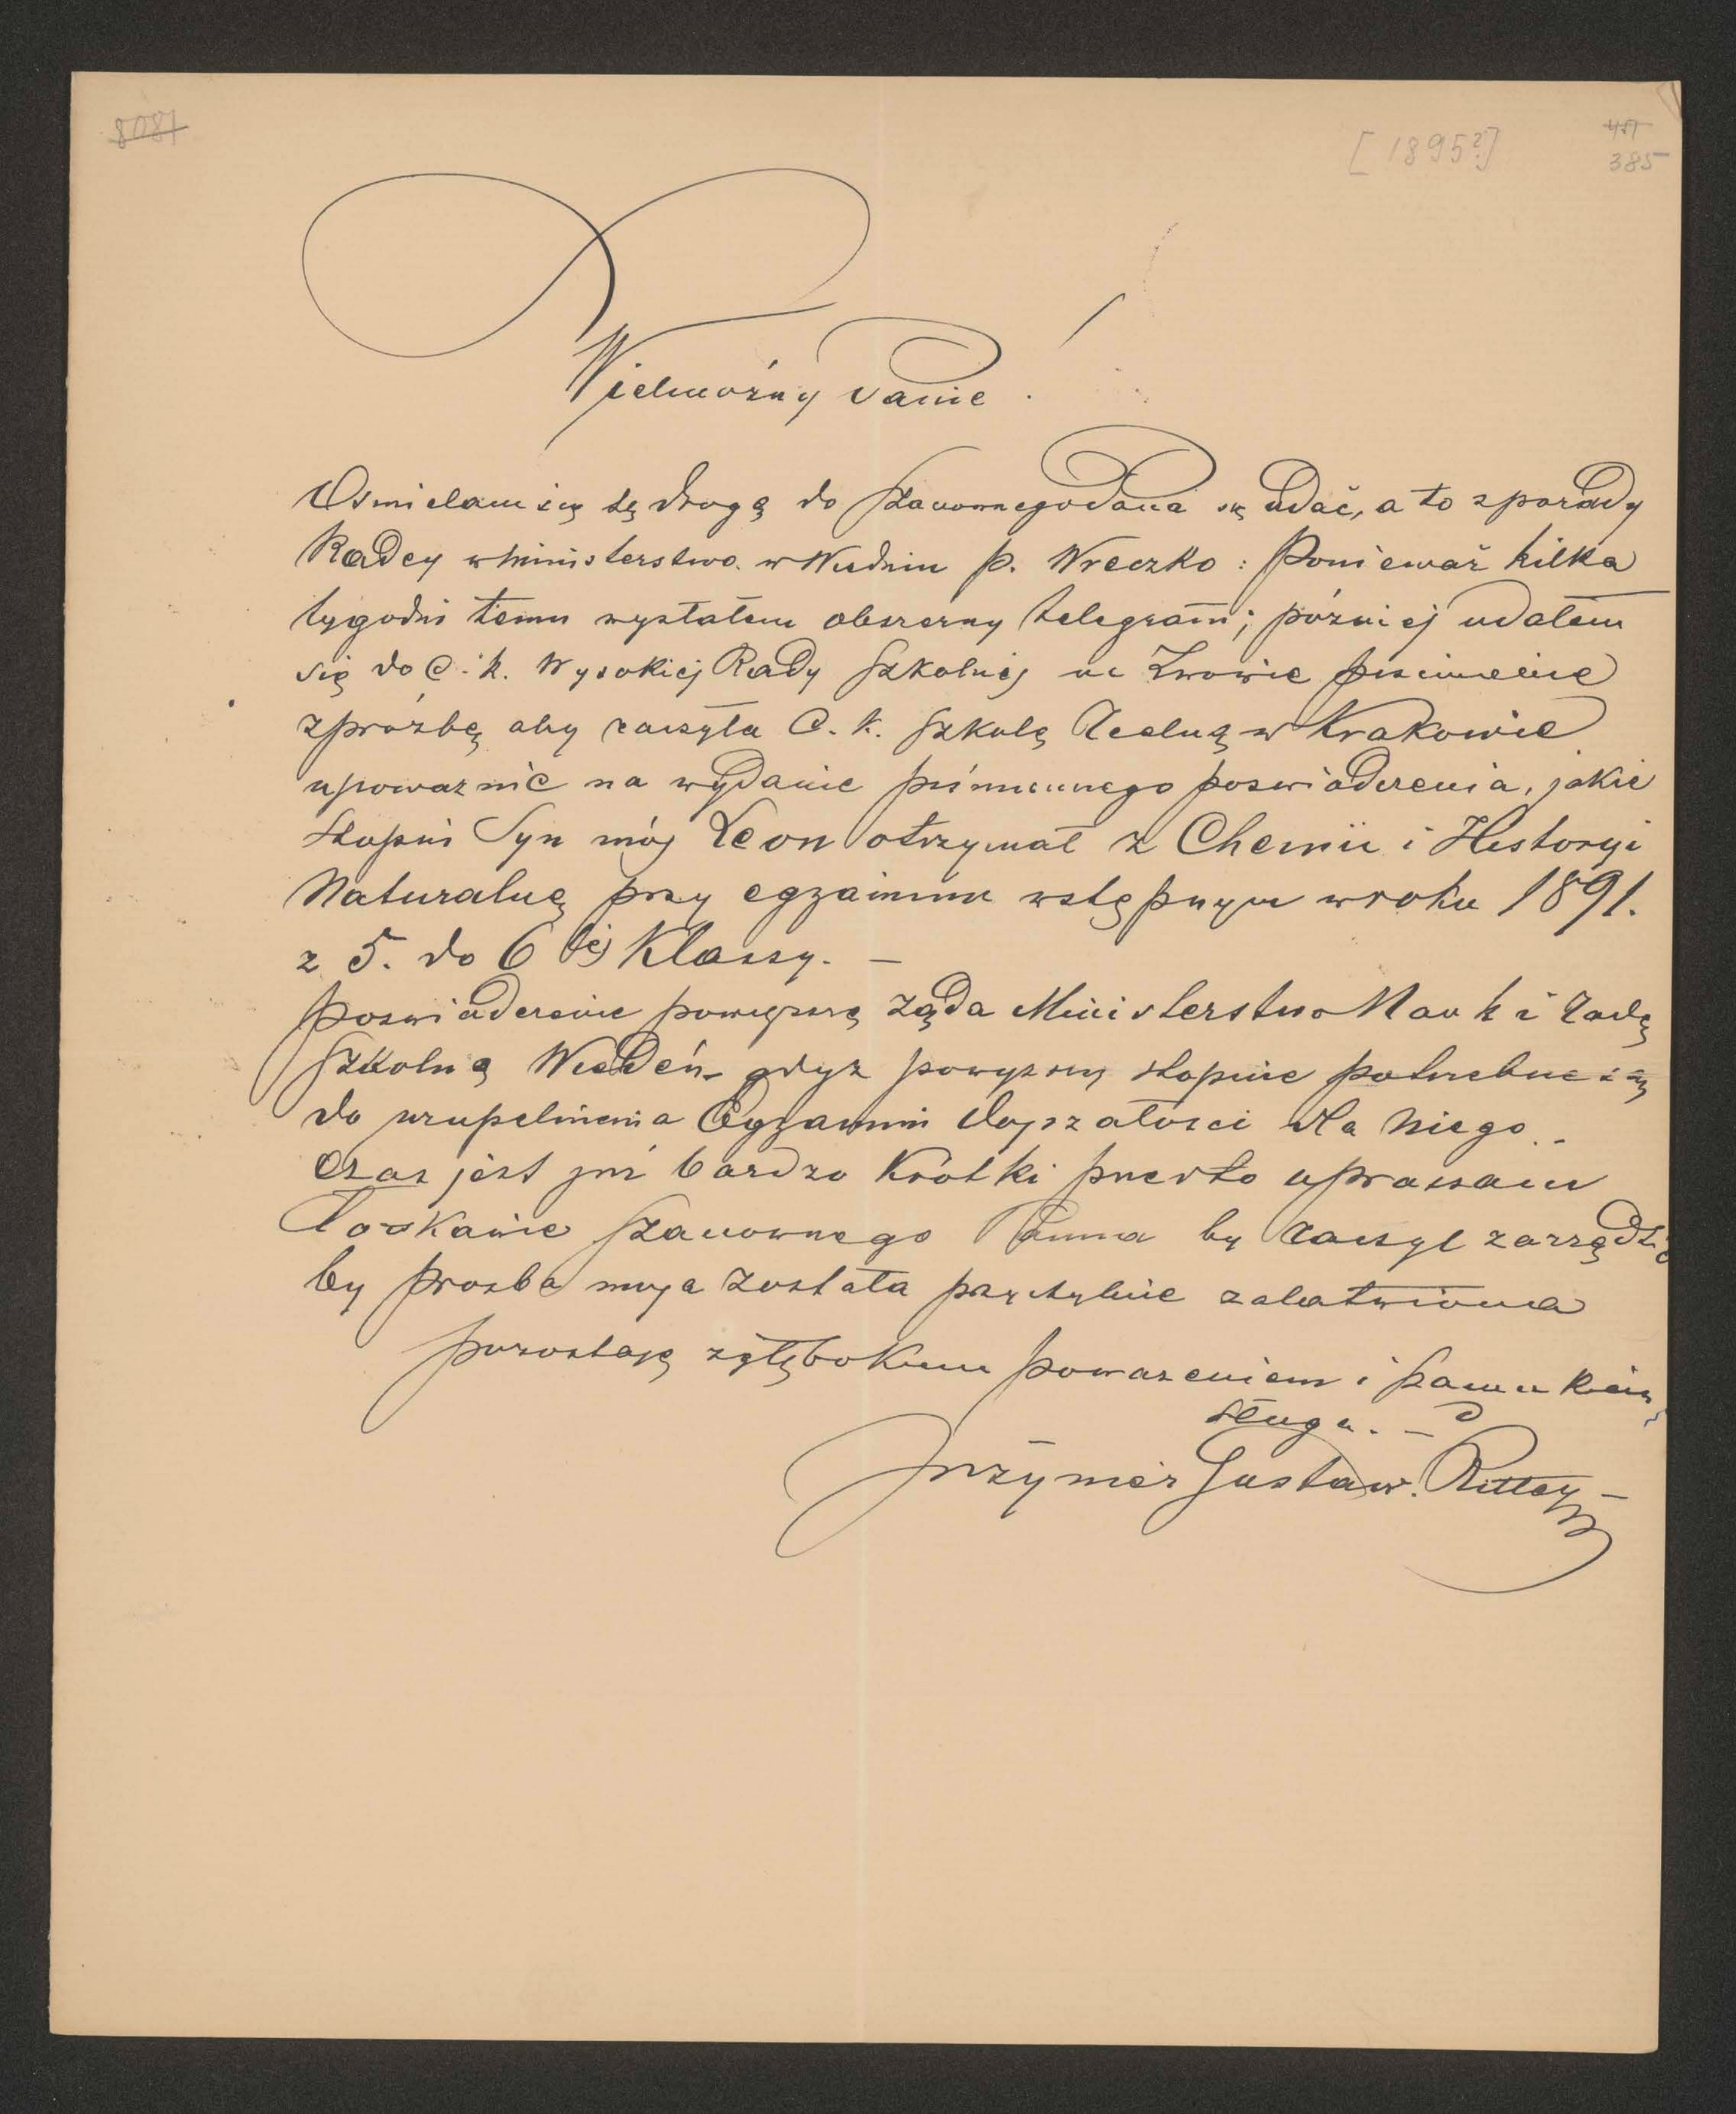 8087
[1895?]
457
385
Wielmożny Panie!
Ośmielam się tę drogą do Szanownego Pana się udać, a to z porady
Radcy w Ministerstwo w Wiedniu p. Wreczko: Ponieważ kilka
tygodni temu wysłałem obszerny telegram; później udałem
się do C. k. Wysokiej Rady Szkolnej we Lwowie piśmiennie
z prośbę, aby raczyła C. k. Szkołę Realną w Krakowie
upoważnić na wydanie piśmiennego poswiadczenia, jakie
stopnie Syn mój Leon otrzymał z Chemii i Historyi
Naturalnę przy egzaminu wstępnym w roku 1891.
z 5. do 6 tej Klassy. —
Poswiadczenie powyższe Ząda Ministerstwo Nauk i Radę
Szkolną Wiedeń gdyz powyzszy stopnie potrzebne są
do uzupelnienia Egzamin dojrzałosci dla niego.
Czas jest juz bardzo Krótki przeto upraszam
Łaskawie Szanownego Panna by raczyl zarządzić
by prosba moja została przychylnie załatwiona
pozostaję z głębokiem powazeniem i
sługa. —
Gustaw.